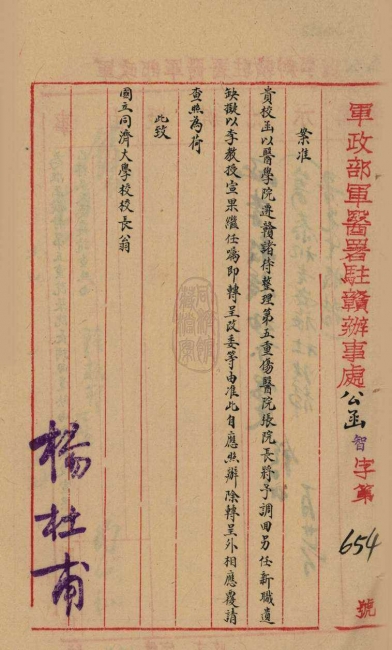 軍政部軍醫署駐贛辦事處公函智字第654號
案准
貴校函以醫學院遷贛諸待整理第五重傷醫院張院長將予調回另任新職遺
缺擬以李教授宣果繼任囑即轉呈改委等由准此自應照辦除轉呈外相應覆請
查照為荷
此致
國立同濟大學校校長翁
楊杜甫